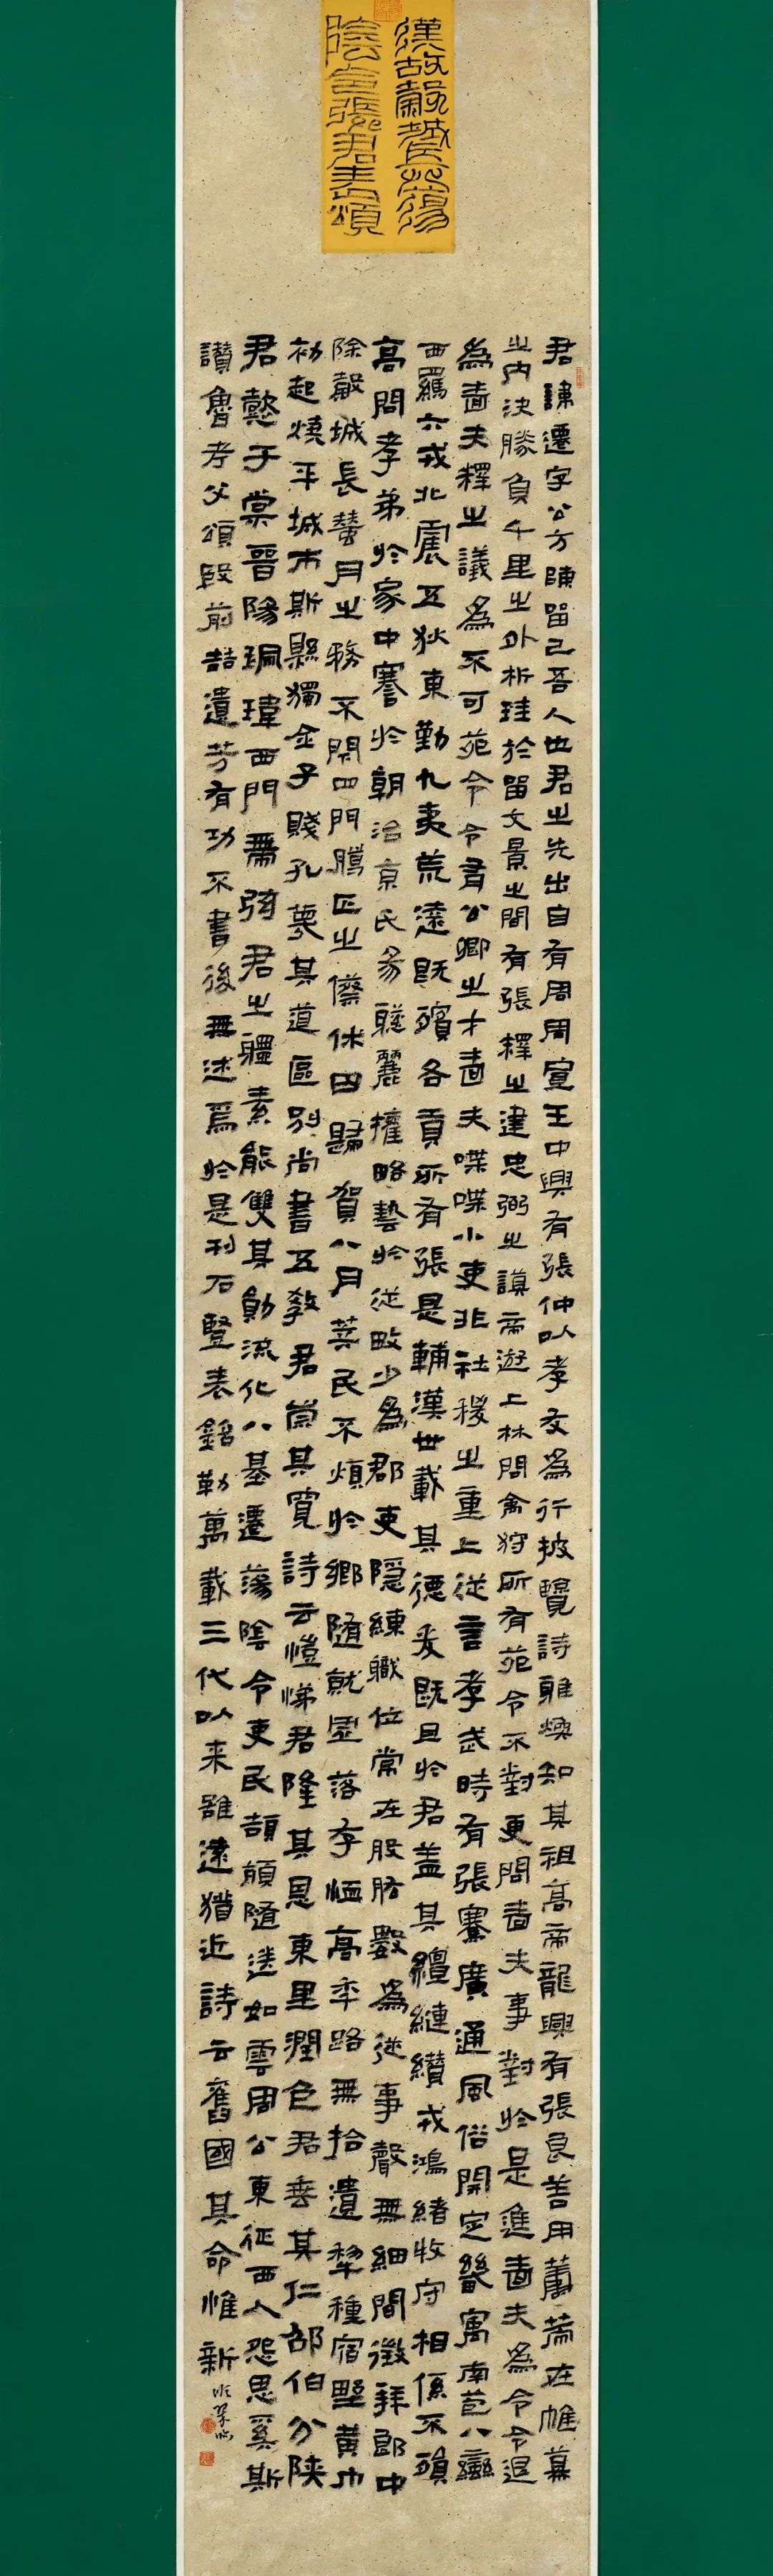 漢故穀城長蕩
陰令張君表頌
君諱遷字公方陳留己吾人也君之先出自有周周宣王中興有張仲以孝友為行披覽詩雅煥知其祖高帝龍興有張良善用籌策在帷幕
之內決勝負千里之外析珪於留文景之間有張釋之建忠弼之謨帝遊上林問禽狩所有苑令不對更問嗇夫事對於是進嗇夫為令令退
為嗇夫釋之議為不可苑令令有公卿之才嗇夫喋喋小吏非社稷之重上從言孝武時有張騫廣通風俗開定畿寓南苞八蠻
西羈六戎北震五狄東勤九夷荒遠既殯各貢所有張是輔漢世載其德爰既且於君蓋其繵縺纘戎鴻緒牧守相係不殞
高問孝弟於家中謇於朝治京氏易聰麗權略藝於從畋少為郡吏隱練職位常在股肱數為從事聲無細聞徵拜郎中
除穀城長蠶月之務不閉四門臘正之僚休囚歸賀八月筭民不煩於鄉隨就虛落存恤高年路無拾遺犁種宿野黃巾
初起燒平城市斯縣獨全子賤孔蔑其道區別尚書五教君崇其寬詩云愷悌君隆其恩東里潤色君垂其仁邵伯分陝
君懿于棠晉陽珮瑋西門帶弦君之體素能雙其勛流化八基遷蕩陰令吏民頡頏隨送如雲周公東征西人怨思奚斯
讚魯考父頌殷前喆遺芳有功不書後無述焉於是刊石豎表銘勒萬載三代以來雖遠猶近詩云舊國其命惟新